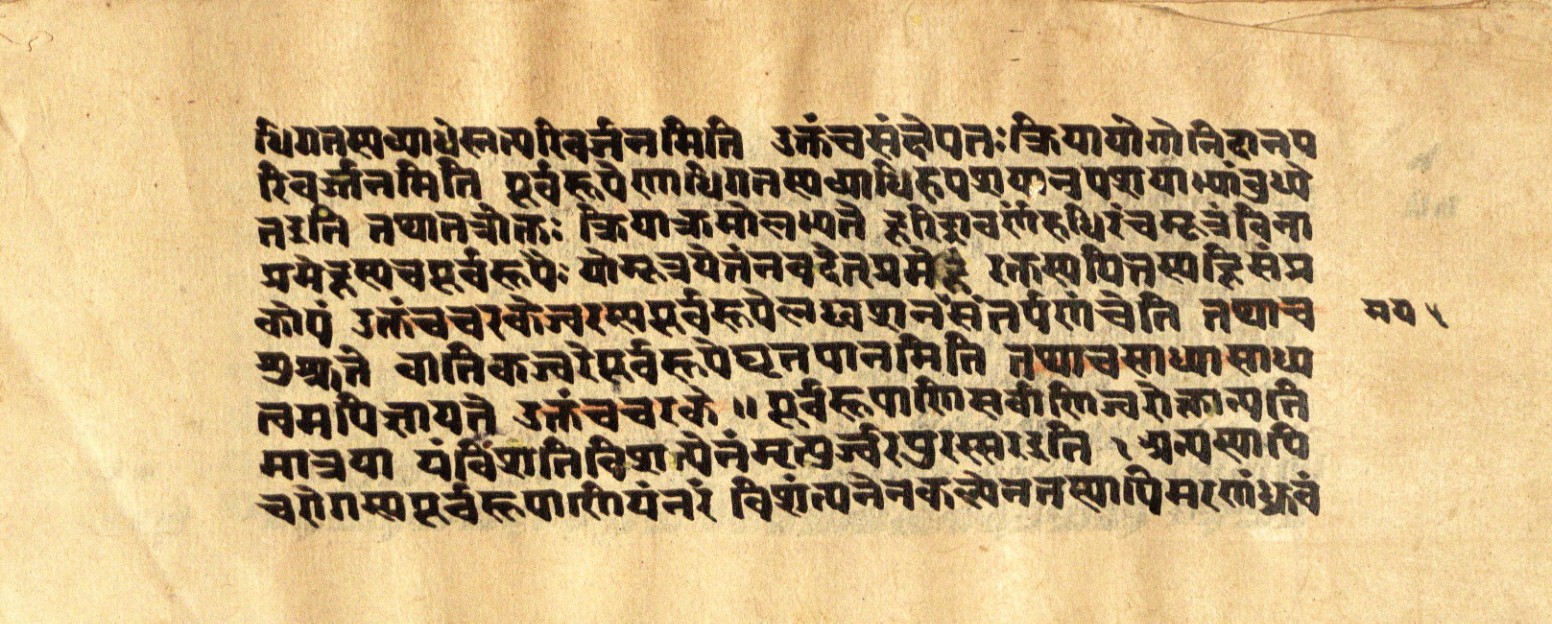 धिगतस्यव्याधेस्तत्परिवर्ज्जनमिति उक्तंचसंक्षेपतः क्रियायोगोनिदानप
रिवर्ज्जनमिति पूर्वरूपेणाधिगतस्यव्याधिरुपशयानुपशयाभ्यांबुध्ये
तइति तथातत्रोक्तः क्रियाक्रमोलभ्यते हारिद्रवर्णंरुधिरंचमूत्रंविना
प्रमेहस्यचपूर्वरूपैः योमूत्रयेतंनवदेतप्रमेहं रक्तस्यपित्तस्यहिसंप्र
कोपं उक्तंचचरकेज्वरस्यपूर्वरूपेलघ्वशनंसंतर्पणंचेति तथाच
शुश्रुते वातिकज्वरेपूर्वरूपेघृतपानमिति तथाचसाध्यासाध्य
त्वमपिज्ञायते उक्तंचचरके ॥ पूर्वरूपाणिसर्वाणिज्वरोक्तान्यति
मात्रया यंविंशतिविशत्येनंमृत्युर्ज्वरपुरस्सरइति । अन्यस्यापि
चरोगस्यपूर्वरूपाणियंनरं विशंत्यनेनकल्पेनतस्यापिमरणंध्रुवं